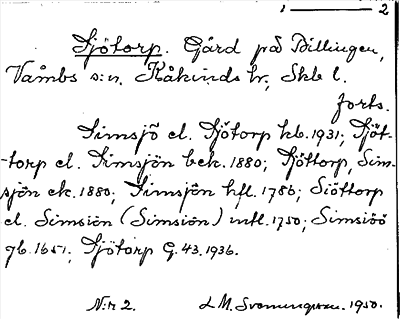 1 ——— 2
Sjötorp. Gård på Billingen,
Våmbs s:n. Kåkinds hr, Skb l.
forts.
Simsjö el. Sjötorp kb. 1931; Sjöt-
-torp el. Simsjön bek. 1880; Sjöttorp, Sim-
sjön ek. 1880; Simsjön hfl. 1786; Siöttorp
el. Simsiön (Simsiön) mtl. 1750; Simsiöö
gb. 1651; Sjötorp G. 43. 1936.
N:r 2. L M. Svenungsson. 1950.